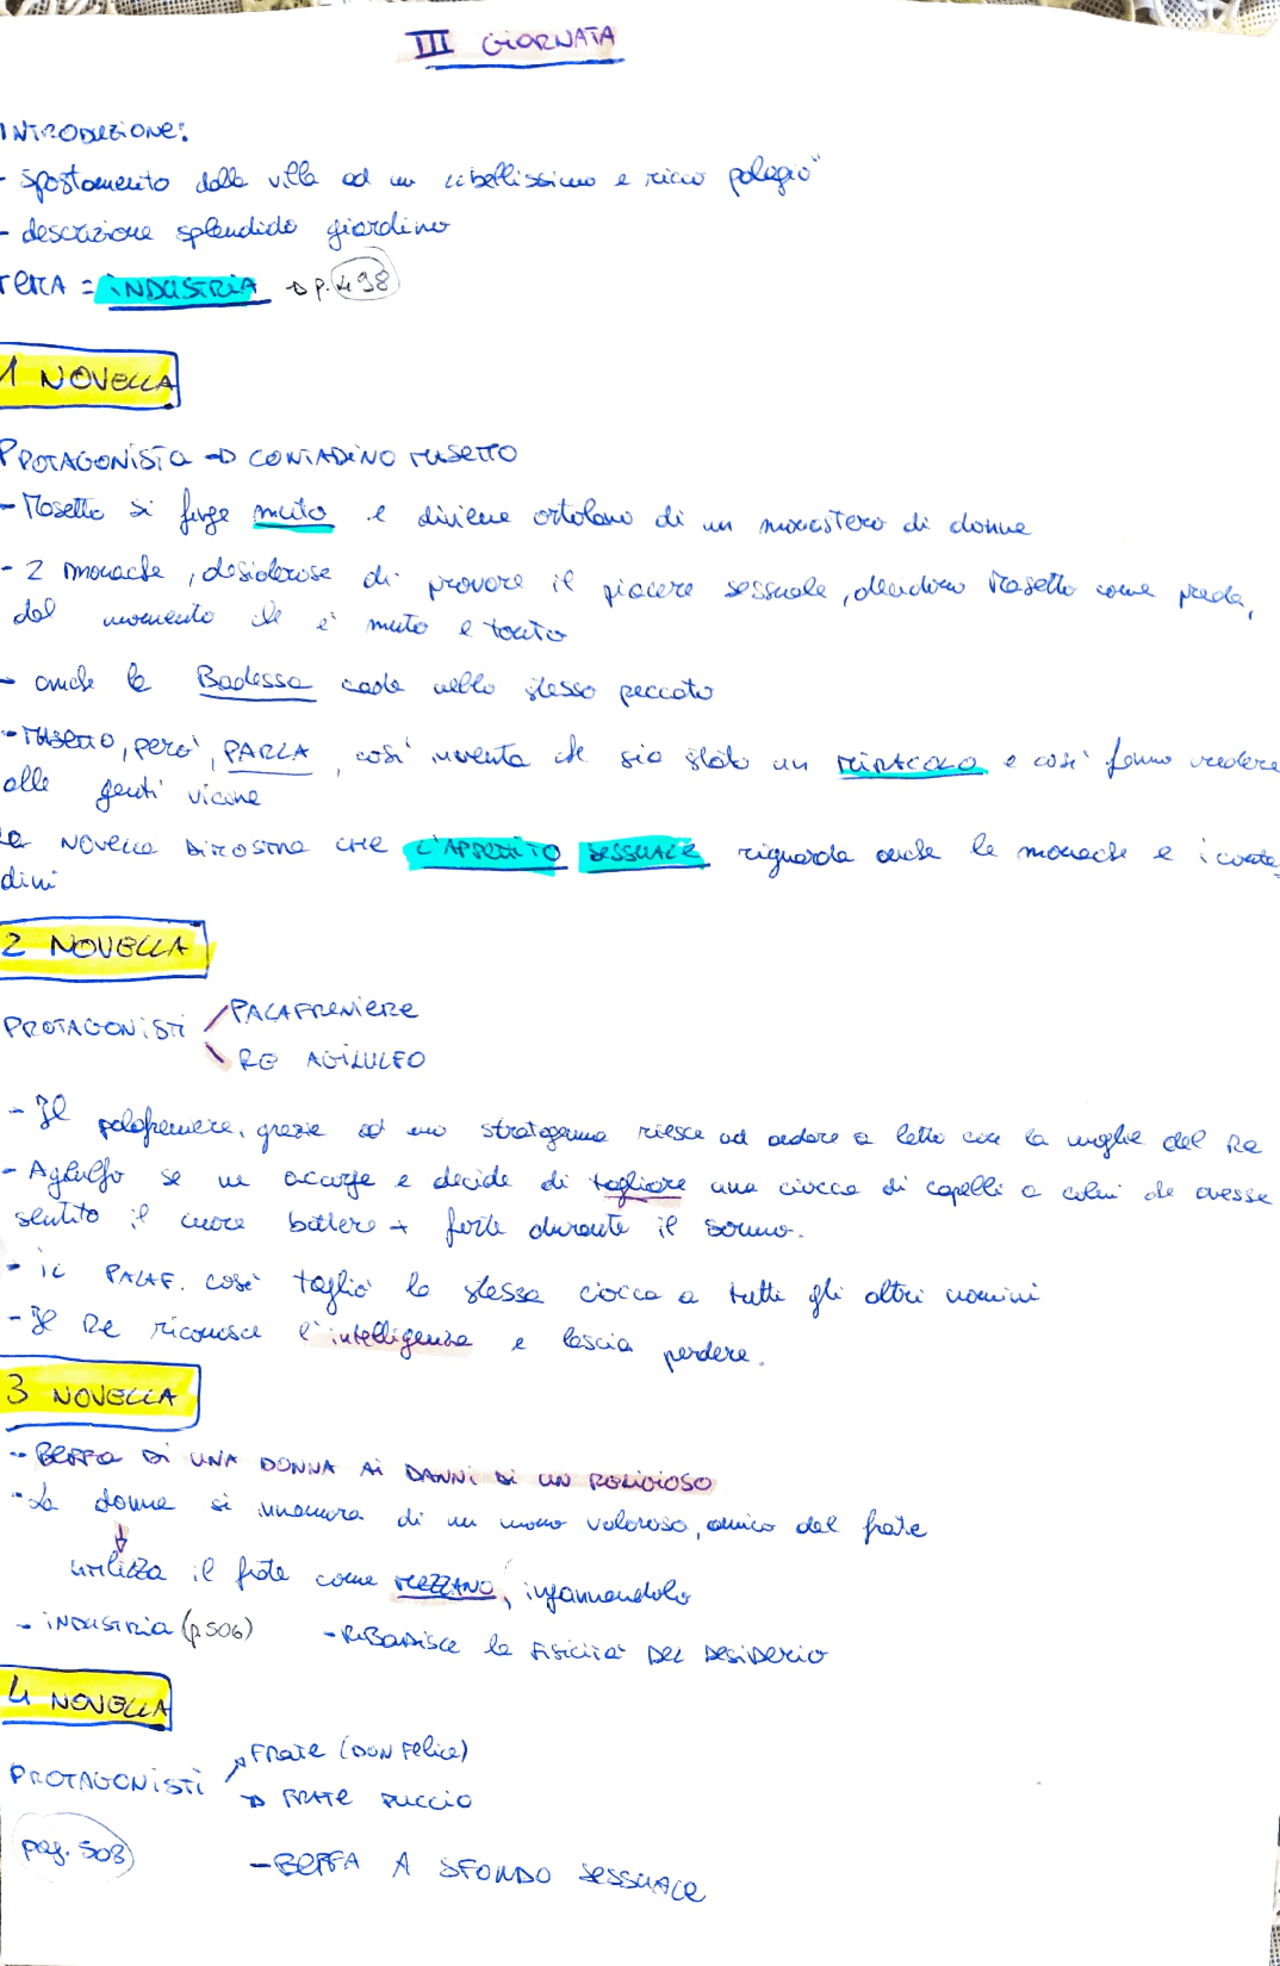 III GIORNATA
INTRODUZIONE:
- spostamento dalla villa ad un "bellissimo e ricco palagio"
- descrizione splendido giardino
TEMA = INDUSTRIA → p. 498
1 NOVELLA
PROTAGONISTA → CONTADINO MASETTO
- Masetto si finge muto e diviene ortolano di un monastero di donne
- 2 monache, desiderose di provare il piacere sessuale, Masetto come preda,
dal momento che è muto e tonto
- anche la Badessa cade nello stesso peccato
- MASETTO, però, PARLA, così inventa che sia stato un MIRACOLO e così fanno credere
alle genti vicine
La NOVELLA DIMOSTRA CHE L'APPETITO SESSUALE riguarda anche le monache e i conta-
dini
2 NOVELLA
PROTAGONISTI PALAFRENIERE
RE AGILULFO
- Il palafreniere, grazie ad uno stratagemma riesce ad andare a letto con la moglie del Re
- Agilulfo se ne accorge e decide di tagliare una ciocca di capelli a colui che avesse
sentito il cuore battere + forte durante il sonno.
- il PALAF. così tagliò la stessa ciocca a tutti gli altri uomini
- Il Re riconosce l'intelligenza e lascia perdere.
3 NOVELLA
- BEFFA DI UNA DONNA AI DANNI DI UN RELIGIOSO
- La donna si innamora di un uomo valoroso, amico del frate
↓
utilizza il frate come MEZZANO, ingannandolo
- INDUSTRIA (p 506) - RIBADISCE la FISICITÀ DEL DESIDERIO
4 NOVELLA
PROTAGONISTI → FRATE (DON FELICE)
→ FRATE PUCCIO
pag. 503 - BEFFA A SFONDO SESSUALE